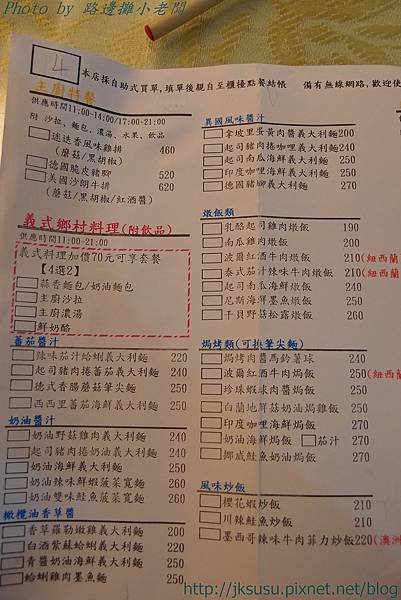 Photo by 路邊攤小老闆
4
本店採自助式買單,填單後親自至櫃檯點餐結帳 備有無線網路,歡迎使
主廚特餐
供應時間11:00-14:00/17:00-21:00
附 沙拉、麵包、濃湯、水果、飲品
迷迭香風味雞排 460
(蘑菇/黑胡椒)
德國脆皮豬腳 520
美國沙朗牛排 620
(蘑菇/黑胡椒/紅酒醬)
義式鄉村料理(附飲品)
供應時間11:00-21:00
義式料理加價70元可享套餐
【4選2】
蒜香麵包/奶油麵包
主廚沙拉
主廚濃湯
鮮奶酪
蕃茄醬汁
辣味茄汁蛤蜊義大利麵 220
起司豬肉捲蕃茄義大利麵 240
德式香腸蘑菇筆尖麵 250
西西里蕃茄海鮮義大利麵 250
奶油醬汁
奶油野菇雞肉義大利麵 240
起司豬肉捲奶油義大利麵 240
奶油海鮮義大利麵 250
奶油辣味鮮蝦菠菜寬麵 260
奶油雙味鮭魚菠菜寬麵 260
橄欖油香草醬
香草羅勒嫩雞義大利麵 200
白酒紫蘇蛤蜊義大利麵 220
青醬奶油海鮮義大利麵 250
蛤蜊雞肉墨魚麵 250
異國風味醬汁
拿坡里蛋黃肉醬義大利麵200
起司豬肉捲咖哩義大利麵 240
起司南瓜海鮮義大利麵 250
印度咖哩海鮮義大利麵 250
德國豬腳義大利麵 270
燉飯類
乳酪起司雞肉燉飯 190
南瓜雞肉燉飯 200
波爾紅酒牛肉燉飯 210(紐西蘭
泰式茄汁辣味牛肉燉飯 210(紐西蘭
起司南瓜海鮮燉飯 240
尼斯海洋墨魚燉飯 250
干貝野菇松露燉飯 260
焗烤類(可挑筆尖麵)
焗烤肉醬馬鈴薯球 240
波爾紅酒牛肉焗飯 250(紐西蘭
珍珠蝦球肉醬焗飯 250
白蘭地鮮菇奶油焗雞飯 250
印度咖哩海鮮焗飯 270
奶油海鮮焗飯 茄汁 270
挪威鮭魚奶油焗飯 270
風味炒飯
櫻花蝦炒飯 210
川辣鮭魚炒飯 210
墨西哥辣味牛肉菲力炒飯220(澳洲
http://jksusu.pixnet.net/blog